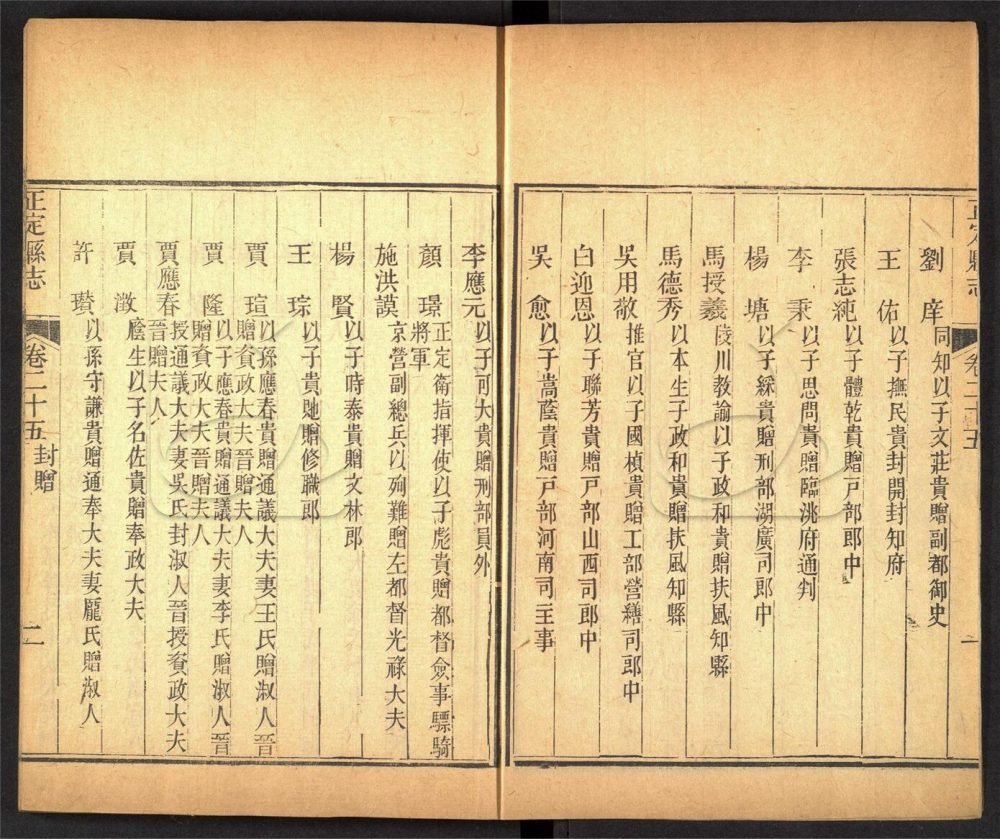 正定縣志
卷二十五
一
劉庠 同知以子文莊貴贈副都御史
王佑 以子撫民貴封開封知府
張志純 以子體乾貴贈戸部郎中
李秉 以子思問貴贈臨洮府通判
楊塘 以子綵貴贈刑部湖廣司郎中
馬授義 陵川教諭以子政和貴贈扶風知縣
馬德秀 以本生子政和貴贈扶風知縣
吳用敬 推官以子國楨貴贈工部營繕司郎中
白迎恩 以子聯芳貴贈戸部山西司郎中
吳愈 以子嵩蔭貴贈戸部河南司主事
李應元 以子可大貴贈刑部員外
顏璟 正定衛指揮使以子彪貴贈都督僉事驃騎
將軍
施洪謨 京營副總兵以殉難贈左都督光祿大夫
楊賢 以子時泰貴贈文林郎
王琮 以子貴貤贈修職郎
賈瑄 以孫應春貴贈通議大夫妻王氏贈淑人晉
贈資政大夫晉贈夫人
賈隆 以子應春貴贈通議大夫妻李氏贈淑人晉
贈資政大夫晉贈夫人
賈應春 授通議大夫妻吳氏封淑人晉授資政大夫
晉贈夫人
賈澂 廕生以子名佐貴贈奉政大夫
許瓚 以孫守謙貴贈通奉大夫妻龐氏贈淑人
正定縣志
卷二十五 封贈
二